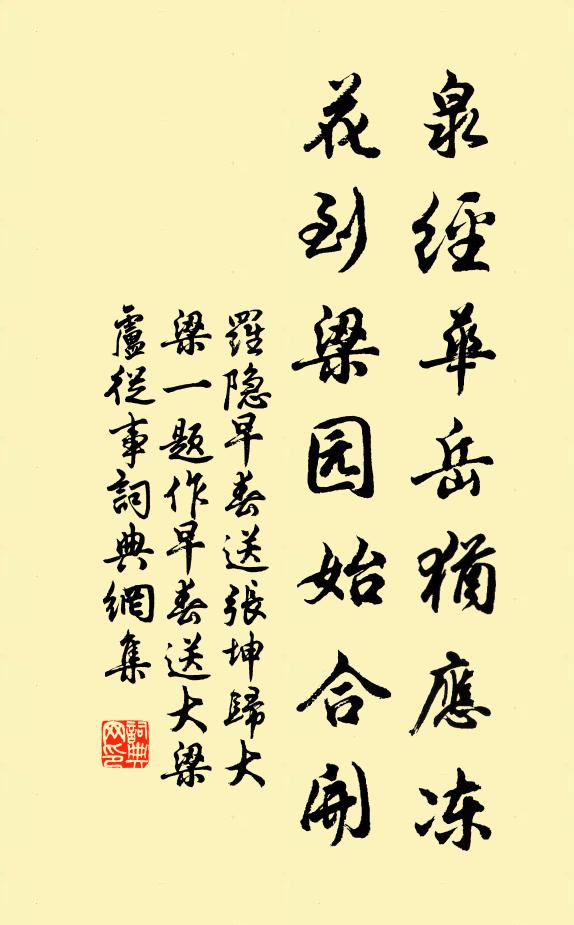 泉經華岳猶應冻
花到梁园始合開
羅隐早春送張坤歸大
梁一题作早春送大梁
盧從事詞典網集
詞典网印